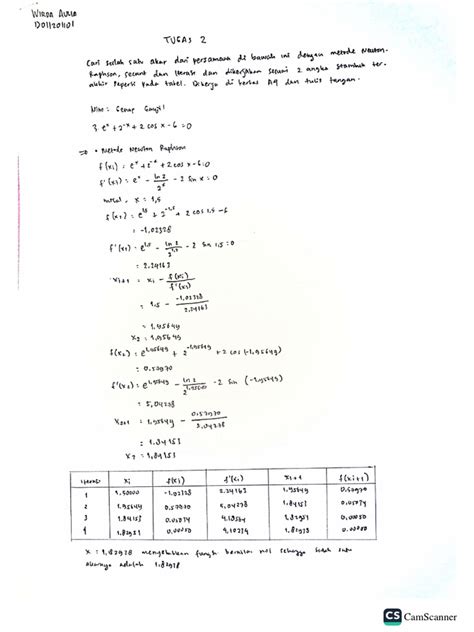 WIRDA AULIA
D011201101
TUGAS 2
Cari salah satu akar dari persamaan di bawah ini dengan metode Newton-
Raphson, secant dan iterasi dan dikerjakan sesuai 2 angka stambuk ter-
akhir seperti pada tabel. Dikerja di kertas A4 dan tulis tangan.
Nim : Genap Ganjil
3 e^x + 2^-x + 2 cos x - 6 = 0
=> • Metode Newton Raphson
f(xi) = e^x + 2^-x + 2 cos x - 6 = 0
f'(xi) = e^x - ln 2 / 2^x - 2 sin x = 0
misal, x = 1,5
f(x1) = e^1,5 + 2^-1,5 + 2 cos 1,5 - 6
= -1,02328
f'(x1) = e^1,5 - ln 2 / 2^1,5 - 2 sin 1,5 = 0
= 2.24163
xi+1 = xi - f(xi) / f'(xi)
= 1,5 - -1,02328 / 2,24163
= 1,95649
x2 = 1.95649
f(x2) = e^1,95649 + 2^-1,95649 + 2 cos (-1,95649)
= 0.57970
f'(x2) = e^1,95649 - ln 2 / 2^1,95649 - 2 sin (-1,95649)
= 5,04238
x2+1 = 1,95649 - 0,57970 / 5,04238
= 1.84153
x3 = 1,84153
Iterasi xi f(xi) f'(xi) xi+1 f(xi+1)
1 1.50000 -1.02328 2.24163 1.95649 0.57970
2 1.95649 0.57970 5,04238 1.84153 0.05074
3 1.84153 0.05074 1.82951 0.00050
4 1.82951 0.00050 4.10234 1.82938 0.00000
x = 1,82938 menyebabkan fungsi bernilai nol sehingga salah satu
akarnya adalah 1.82938
CS CamScanner